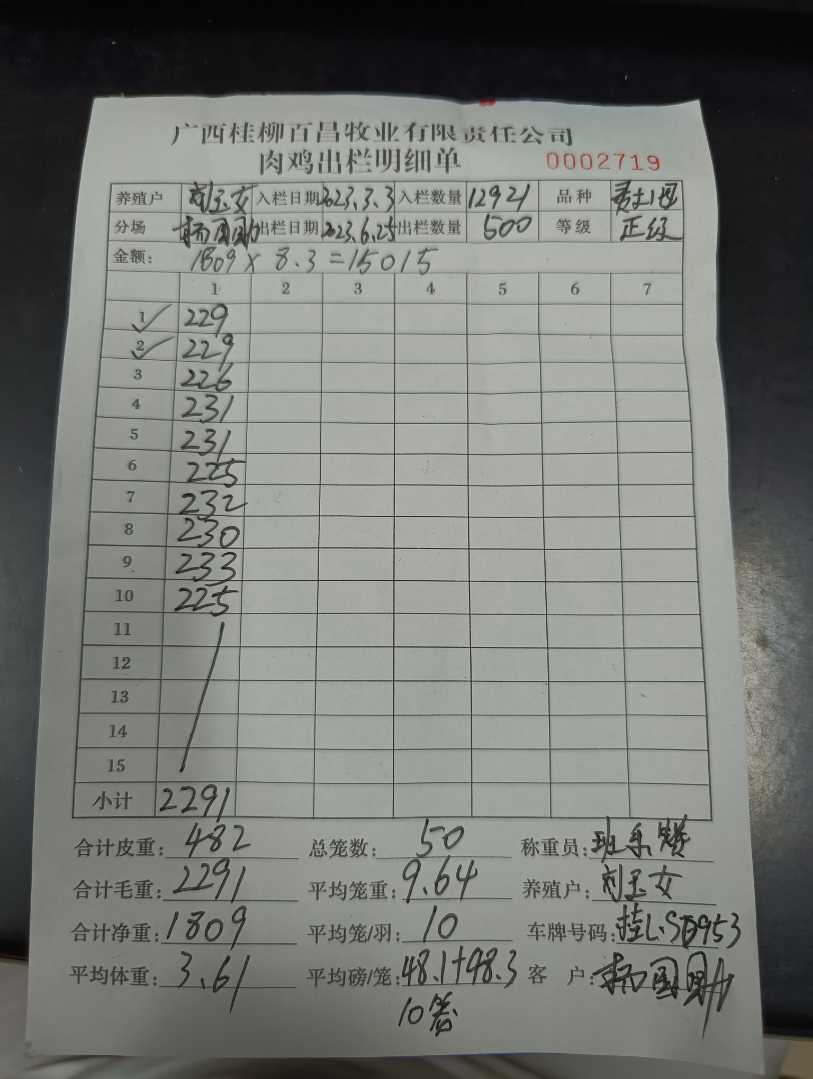 广西桂柳百昌牧业有限责任公司
肉鸡出栏明细单 0002719
养殖户 刘玉女 入栏日期 2023.3.3 入栏数量 12921 品种
分场 杨国勋 出栏日期 2023.6.25 出栏数量 500 等级 正级
金额: 1809 × 8.3 = 15015
1 2 3 4 5 6 7
1 229
2 229
3 226
4 231
5 231
6 225
7 232
8 230
9 233
10 225
11
12
13
14
15
小计 2291
合计皮重: 482 总笼数: 50 称重员:
合计毛重: 2291 平均笼重: 9.64 养殖户: 刘玉女
合计净重: 1809 平均笼/羽: 10 车牌号码: 桂L.SB953
平均体重: 3.61 平均磅/笼: 48.1+48.3 客 户: 杨国勋
10笼